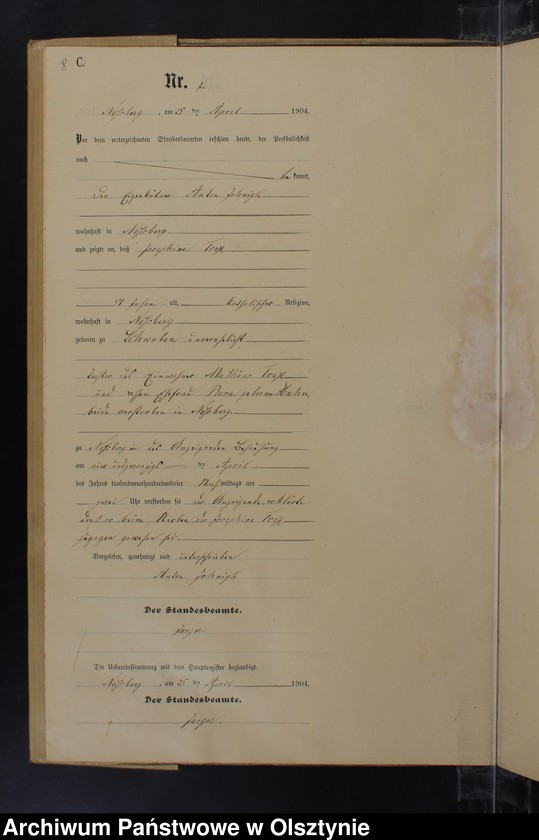 8 C.
Nr.
Noßberg, am 25 ten April 1904.
Vor dem unterzeichneten Standesbeamten erschien heute, der Persönlichkeit
nach
be kannt,
der Eigenkätner Anton
wohnhaft in Noßberg
und zeigte an, daß Josephine
Jahre alt, katholischer Religion,
wohnhaft in Noßberg
geboren zu Schwaben unverehelicht
Tochter des Einwohner Mathäus
und dessen Ehefrau geborene
beide verstorben in Noßberg
zu Noßberg in des Anzeigenden Behausung
am ein und zwanzigsten ten April
des Jahres tausendneunhundertundvier Nachmittags um
zwei Uhr verstorben sei der Anzeigende erklärte
daß er beim Sterben der Josephine
zugegen gewesen sei.
Vorgelesen, genehmigt und unterschrieben
Anton
Der Standesbeamte.
Die Uebereinstimmung mit dem Hauptregister beglaubigt.
Noßberg, am 25 ten April 1904.
Der Standesbeamte.
Archiwum Państwowe w Olsztynie